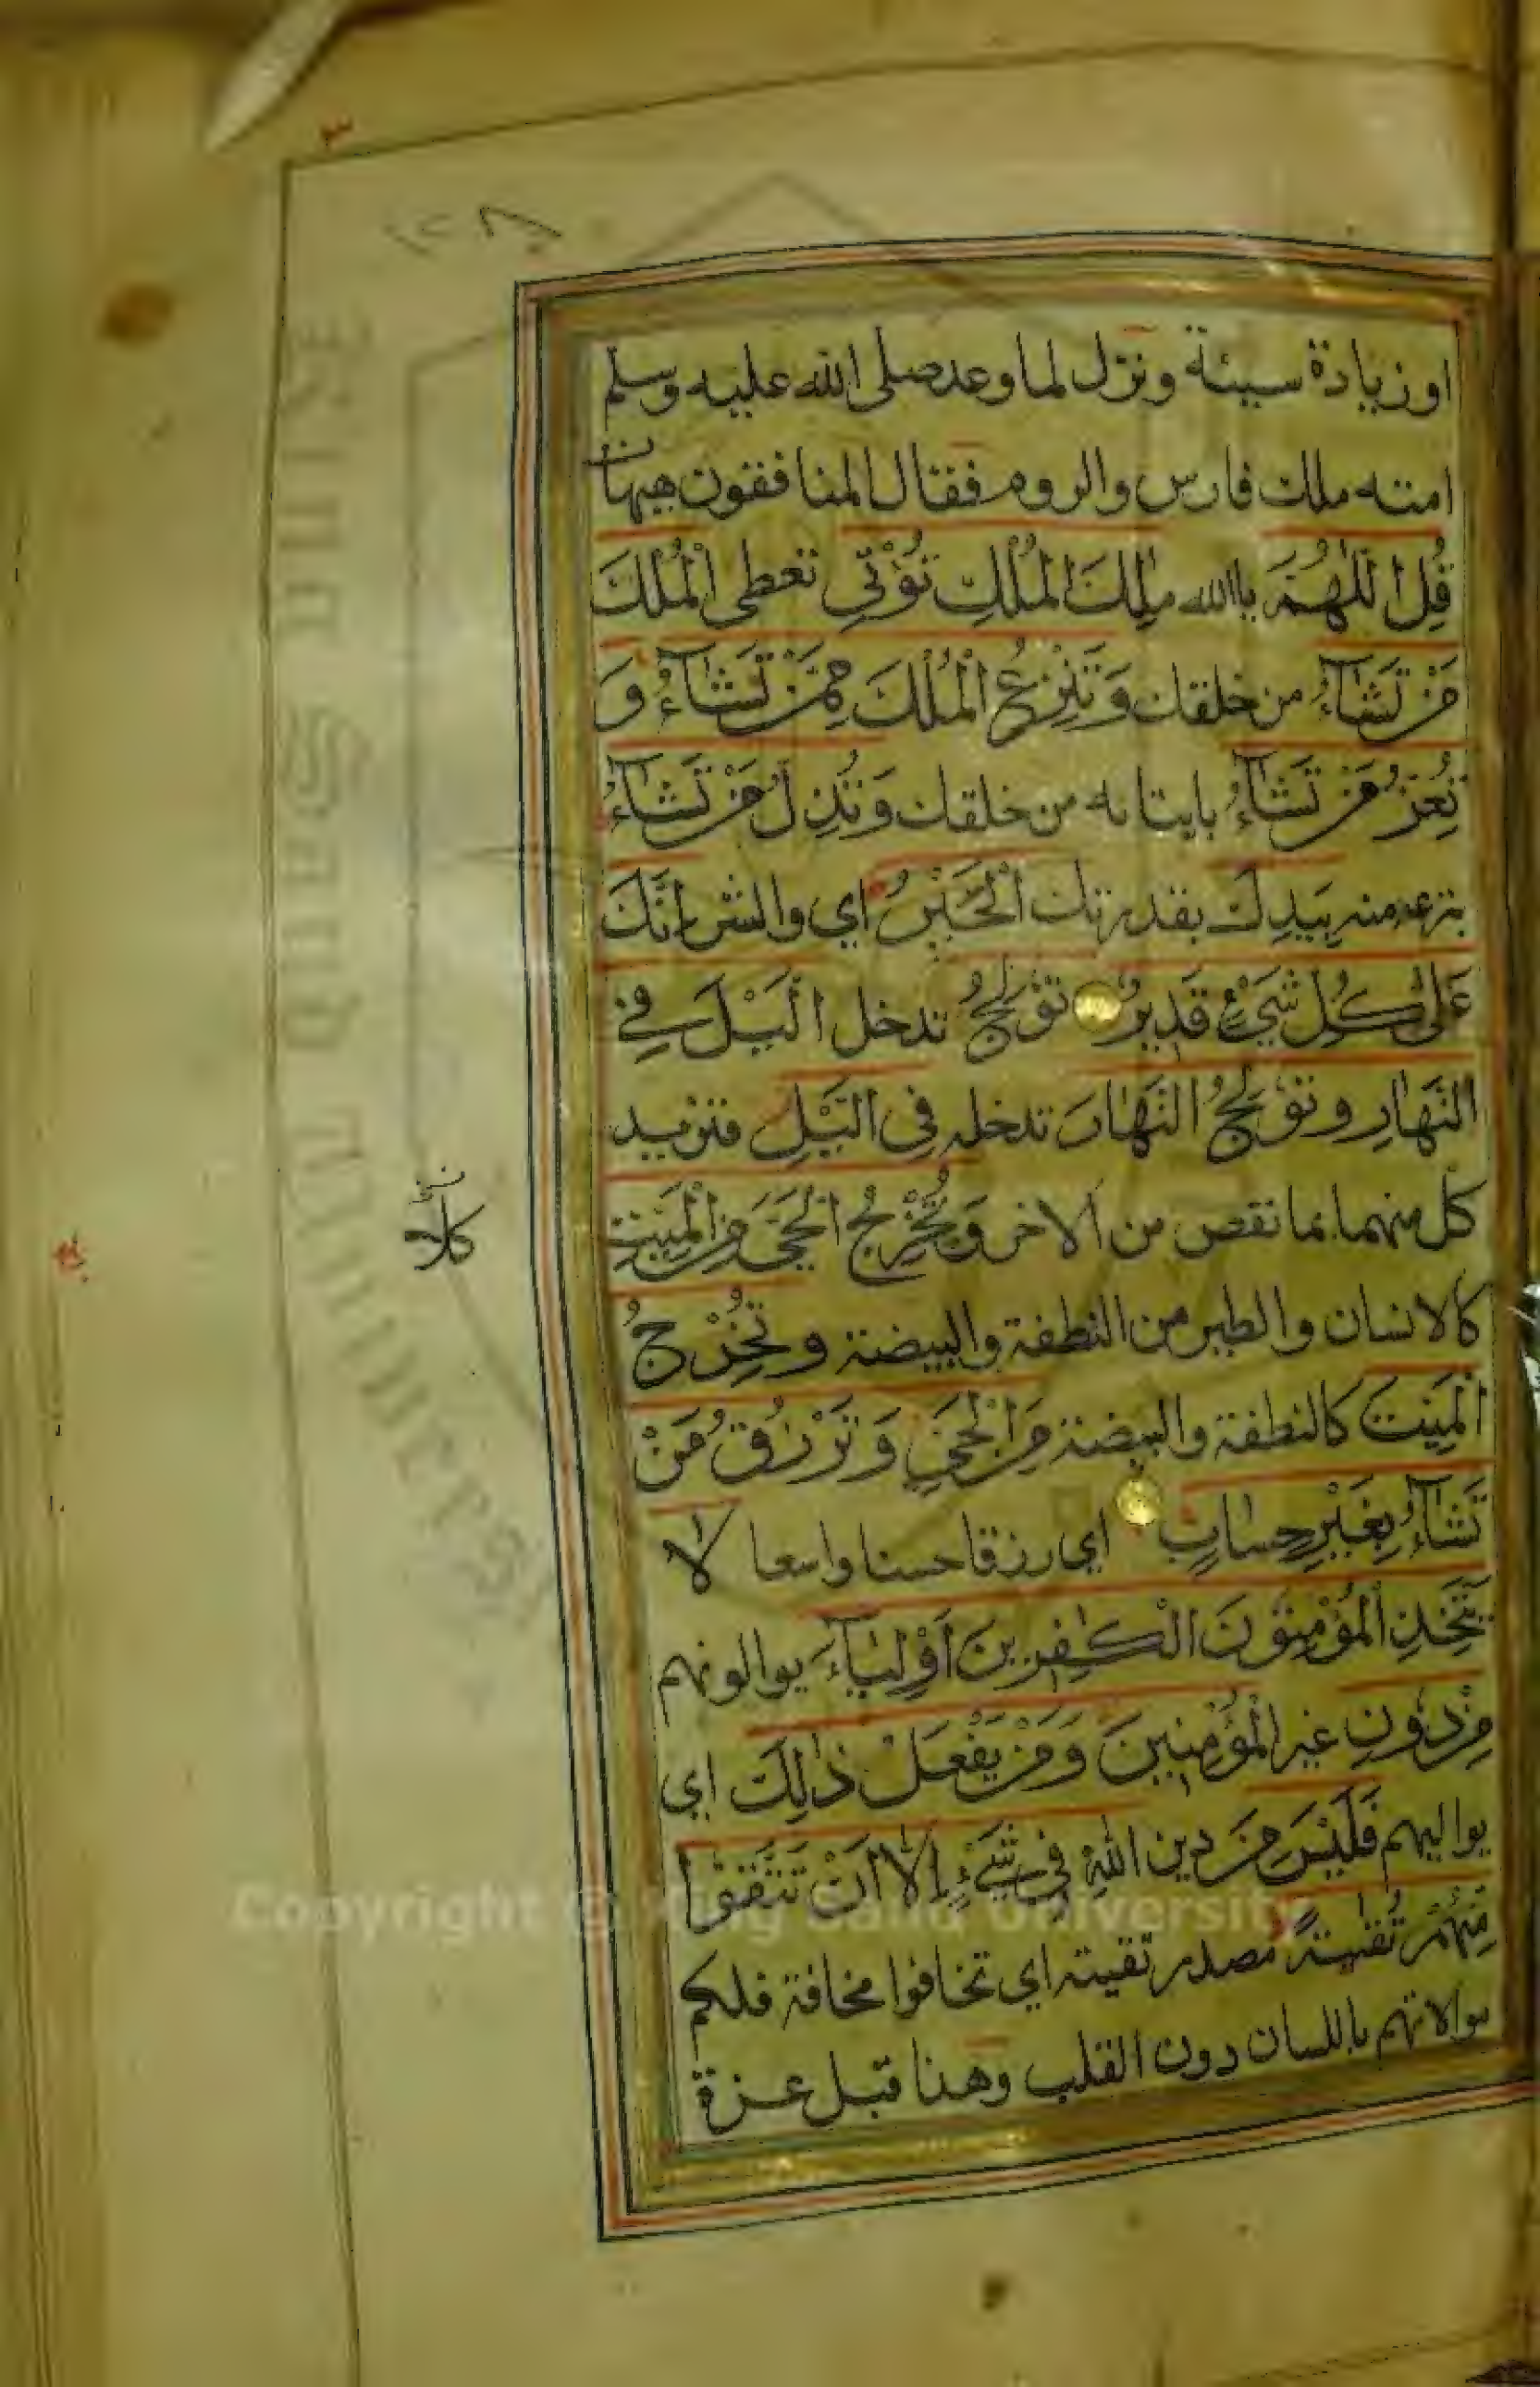 او زيادة سيئة ونزل لما وعد صلى الله عليه وسلم
امته ملك فارس والروم فقال المنافقون هيهات
قُلِ اللّٰهُمَّ ياالله مٰلِكَ الْمُلْكِ تُؤْتِي تعطى الْمُلْكَ
مَنْ تَشَآءُ من خلقك وَتَنْزِعُ الْمُلْكَ مِمَّنْ تَشَآءُ وَ
تُعِزُّ مَنْ تَشَآءُ بايتائه من خلقك وَتُذِلُّ مَنْ تَشَآءُ
بنزعه منه بِيَدِكَ بقدرتك الْخَيْرُ اي والشر اِنَّكَ
عَلٰى كُلِّ شَيْءٍ قَدِيرٌ تُوْلِجُ تدخل الَّيْلَ فِي
النَّهَارِ وتُوْلِجُ النَّهَارَ تدخله فِي الَّيْلِ فتزيد
كل منهما بما نقص من الاخر وَتُخْرِجُ الْحَيَّ مِنَ الْمَيِّتِ
كالانسان والطير من النطفة والبيضة وتُخْرِجُ
الْمَيِّتَ كالنطفة والبيضة مِنَ الْحَيِّ وَتَرْزُقُ مَنْ
تَشَآءُ بِغَيْرِ حِسَابٍ اي رزقا حسنا واسعا لَا
يَتَّخِذِ الْمُؤْمِنُوْنَ الْكٰفِرِينَ اَوْلِيَآءَ يوالونهم
مِنْ دُوْنِ غير الْمُؤْمِنِيْنَ وَمَنْ يَفْعَلْ ذٰلِكَ اي
يواليهم فَلَيْسَ مِنَ دين اللّٰهِ فِي شَيْءٍ اِلَّا اَنْ تَتَّقُوْا
مِنْهُمْ تُقٰىةً مصدر تقيته اي تخافوا مخافة فلكم
موالاتهم باللسان دون القلب وهذا قبل عزة
كلا
Copyright © King Saud University
King Saud University